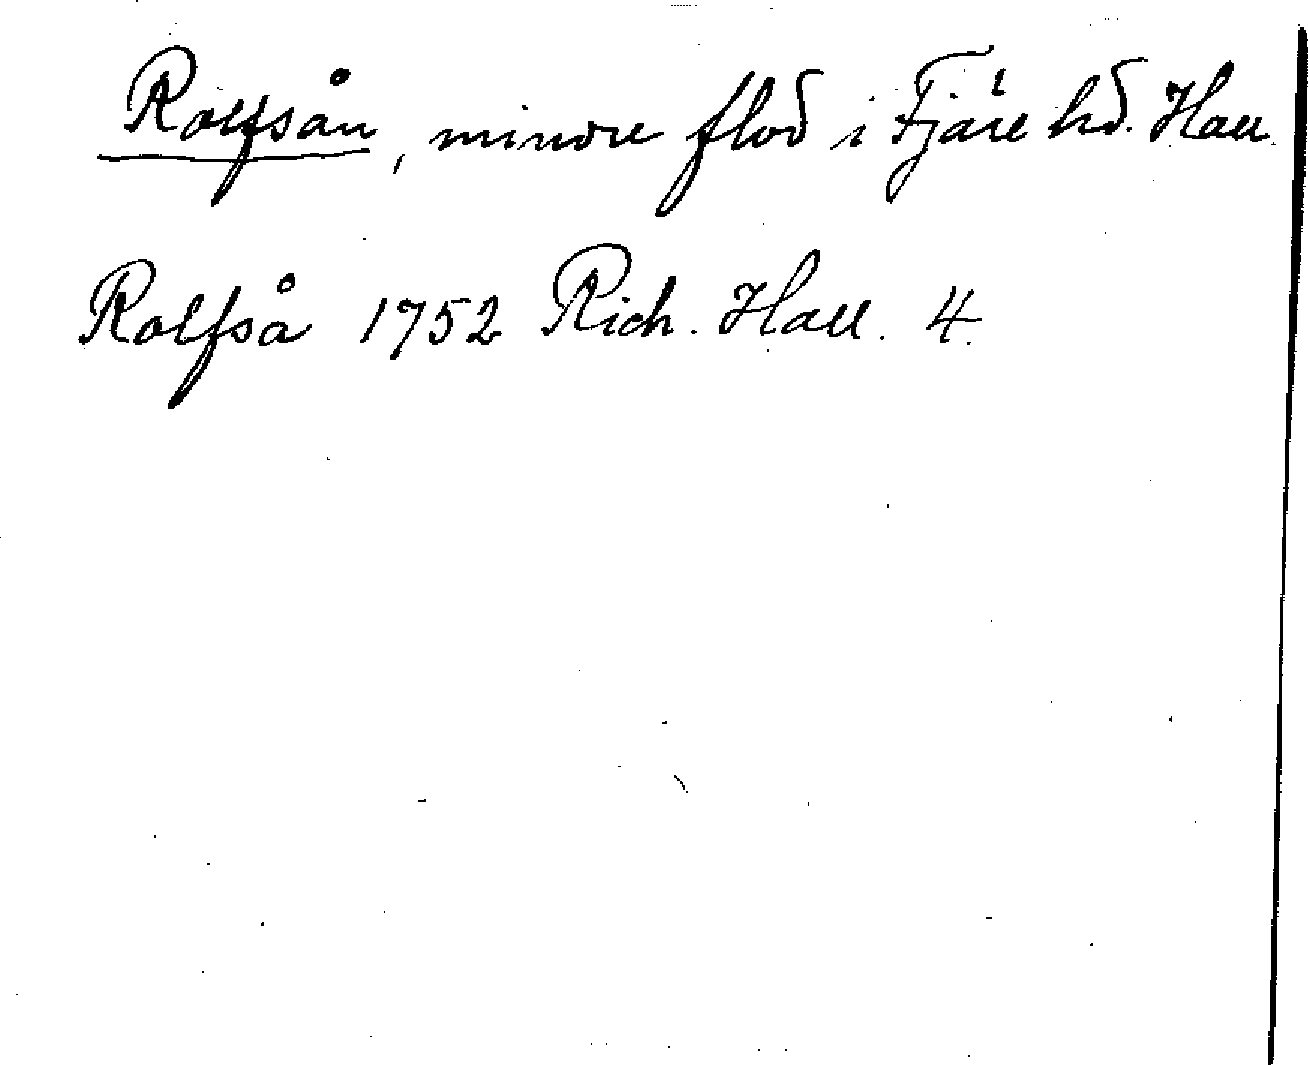 Rolfsån, mindre flod i Fjäre hd. Hall.
Rolfså 1752 Rich. Hall. 4.